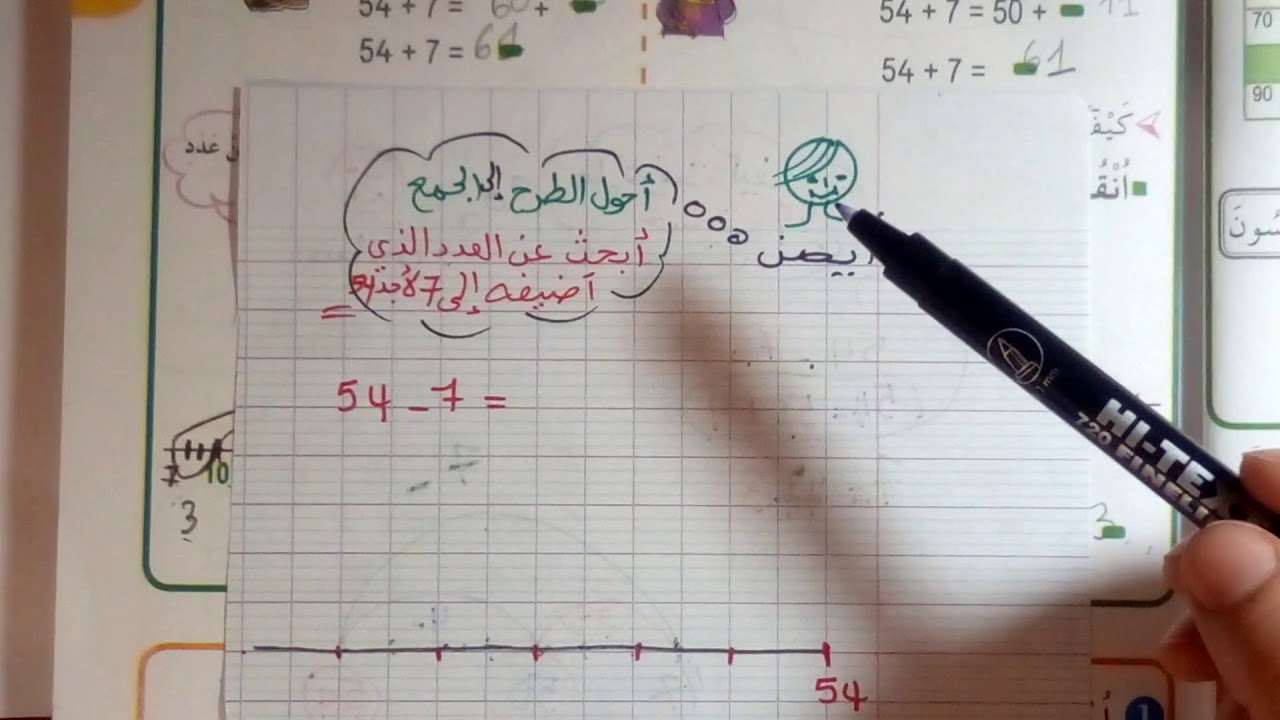 54 + 7 = 60 +
54 + 7 = 50 + 11
54 + 7 = 61
54 + 7 = 61
70
90
كَيْفَ
عدد
أحول الطرح إلى الجمع
أبحث عن العدد الذي
أضيفه إلى 7 لأجد
=
54 - 7 =
7 10
3
3
54
HI-TEX
720 FINELI
1 mm
1